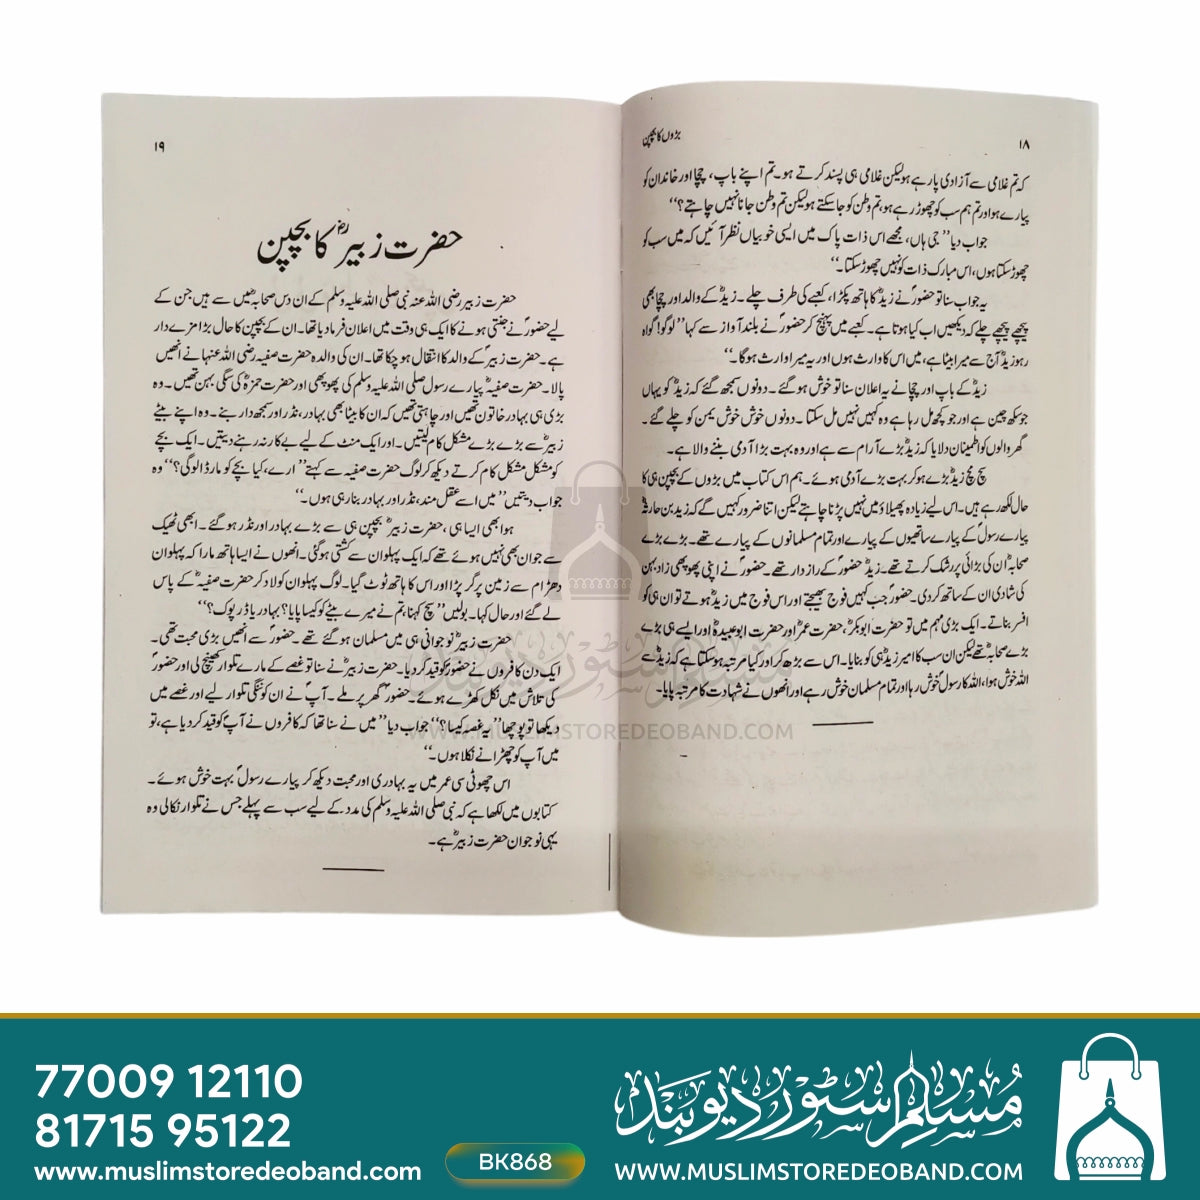 ۱۸
بڑوں کا بچپن
کہ تم غلامی سے آزادی پا رہے ہو لیکن غلامی ہی پسند کرتے ہو۔ تم اپنے باپ، چچا اور خاندان کو
پیارے ہو اور تم ہم سب کو چھوڑ رہے ہو، تم وطن کو جا سکتے ہو لیکن تم وطن جانا نہیں چاہتے؟‘‘
جواب دیا ’’جی ہاں، مجھے اس ذات پاک میں ایسی خوبیاں نظر آئیں کہ میں سب کو
چھوڑ سکتا ہوں، اس مبارک ذات کو نہیں چھوڑ سکتا۔‘‘
یہ جواب سنا تو حضورؐ نے زیدؓ کا ہاتھ پکڑا، کعبے کی طرف چلے۔ زیدؓ کے والد اور چچا بھی
پیچھے پیچھے چلے کہ دیکھیں اب کیا ہوتا ہے۔ کعبے میں پہنچ کر حضورؐ نے بلند آواز سے کہا ’’لوگو! گواہ
رہو زیدؓ آج سے میرا بیٹا ہے، میں اس کا وارث ہوں اور یہ میرا وارث ہوگا۔‘‘
زیدؓ کے باپ اور چچا نے یہ اعلان سنا تو خوش ہو گئے۔ دونوں سمجھ گئے کہ زیدؓ کو یہاں
جو سکھ چین ہے اور جو کچھ مل رہا ہے وہ کہیں نہیں مل سکتا۔ دونوں خوش خوش یمن کو چلے گئے۔
گھر والوں کو اطمینان دلایا کہ زیدؓ بڑے آرام سے ہے اور وہ بہت بڑا آدمی بننے والا ہے۔
سچ مچ زیدؓ بڑے ہو کر بہت بڑے آدمی ہوئے۔ ہم اس کتاب میں بڑوں کے بچپن ہی کا
حال لکھ رہے ہیں۔ اس لیے زیادہ پھیلاؤ میں نہیں پڑنا چاہتے لیکن اتنا ضرور کہیں گے کہ زید بن حارثہؓ
پیارے رسولؐ کے پیارے ساتھیوں کے پیارے اور تمام مسلمانوں کے پیارے تھے۔ بڑے بڑے
صحابہؓ ان کی بڑائی پر رشک کرتے تھے۔ زیدؓ حضورؐ کے راز دار تھے۔ حضورؐ نے اپنی پھوپھی زاد بہن
کی شادی ان کے ساتھ کر دی۔ حضورؐ جب کہیں فوج بھیجتے اور اس فوج میں زیدؓ ہوتے تو ان ہی کو
افسر بناتے۔ ایک بڑی مہم میں تو حضرت ابوبکرؓ، حضرت عمرؓ اور حضرت ابو عبیدہؓ اور ایسے ہی بڑے
بڑے صحابہؓ تھے لیکن ان سب کا امیر زیدؓ ہی کو بنایا۔ اس سے بڑھ کر اور کیا مرتبہ ہو سکتا ہے کہ زیدؓ سے
اللہ خوش ہوا، اللہ کا رسولؐ خوش رہا اور تمام مسلمان خوش رہے اور انھوں نے شہادت کا مرتبہ پایا۔
۱۹
حضرت زبیرؓ کا بچپن
حضرت زبیر رضی اللہ عنہ نبی صلی اللہ علیہ وسلم کے ان دس صحابہؓ میں سے ہیں جن کے
لیے حضورؐ نے جنتی ہونے کا ایک ہی وقت میں اعلان فرما دیا تھا۔ ان کے بچپن کا حال بڑا مزے دار
ہے۔ حضرت زبیرؓ کے والد کا انتقال ہو چکا تھا۔ ان کی والدہ حضرت صفیہ رضی اللہ عنہا نے انھیں
پالا۔ حضرت صفیہؓ پیارے رسول صلی اللہ علیہ وسلم کی پھوپھی اور حضرت حمزہؓ کی سگی بہن تھیں۔ وہ
بڑی ہی بہادر خاتون تھیں اور چاہتی تھیں کہ ان کا بیٹا بھی بہادر، نڈر اور سمجھ دار بنے۔ وہ اپنے بیٹے
زبیرؓ سے بڑے بڑے مشکل کام لیتیں۔ اور ایک منٹ کے لیے بے کار نہ رہنے دیتیں۔ ایک بچے
کو مشکل مشکل کام کرتے دیکھ کر لوگ حضرت صفیہ سے کہتے ’’ارے، کیا بچے کو مار ڈالو گی؟‘‘ وہ
جواب دیتیں ’’میں اسے عقل مند، نڈر اور بہادر بنا رہی ہوں۔‘‘
ہوا بھی ایسا ہی، حضرت زبیرؓ بچپن ہی سے بڑے بہادر اور نڈر ہو گئے۔ ابھی ٹھیک
سے جوان بھی نہیں ہوئے تھے کہ ایک پہلوان سے کشتی ہو گئی۔ انھوں نے ایسا ہاتھ مارا کہ پہلوان
دھڑام سے زمین پر گر پڑا اور اس کا ہاتھ ٹوٹ گیا۔ لوگ پہلوان کو لاد کر حضرت صفیہؓ کے پاس
لے گئے اور حال کہا۔ بولیں ’’سچ کہنا، تم نے میرے بیٹے کو کیسا پایا؟ بہادر یا ڈرپوک؟‘‘
حضرت زبیرؓ نوجوانی ہی میں مسلمان ہو گئے تھے۔ حضورؐ سے انھیں بڑی محبت تھی۔
ایک دن کافروں نے حضورؐ کو قید کر دیا۔ حضرت زبیرؓ نے سنا تو غصے کے مارے تلوار کھینچ لی اور حضورؐ
کی تلاش میں نکل کھڑے ہوئے۔ حضورؐ گھر پر ملے۔ آپؐ نے ان کو ننگی تلوار لیے اور غصے میں
دیکھا تو پوچھا ’’یہ غصہ کیسا؟‘‘ جواب دیا ’’میں نے سنا تھا کہ کافروں نے آپؐ کو قید کر دیا ہے، تو
میں آپؐ کو چھڑانے نکلا ہوں۔‘‘
اس چھوٹی سی عمر میں یہ بہادری اور محبت دیکھ کر پیارے رسولؐ بہت خوش ہوئے۔
کتابوں میں لکھا ہے کہ نبی صلی اللہ علیہ وسلم کی مدد کے لیے سب سے پہلے جس نے تلوار نکالی وہ
یہی نوجوان حضرت زبیرؓ ہے۔
مسلم سٹور دیوبند
WWW.MUSLIMSTOREDEOBAND.COM
77009 12110
81715 95122
www.muslimstoredeoband.com
BK868
مسلم سٹور دیوبند
WWW.MUSLIMSTOREDEOBAND.COM